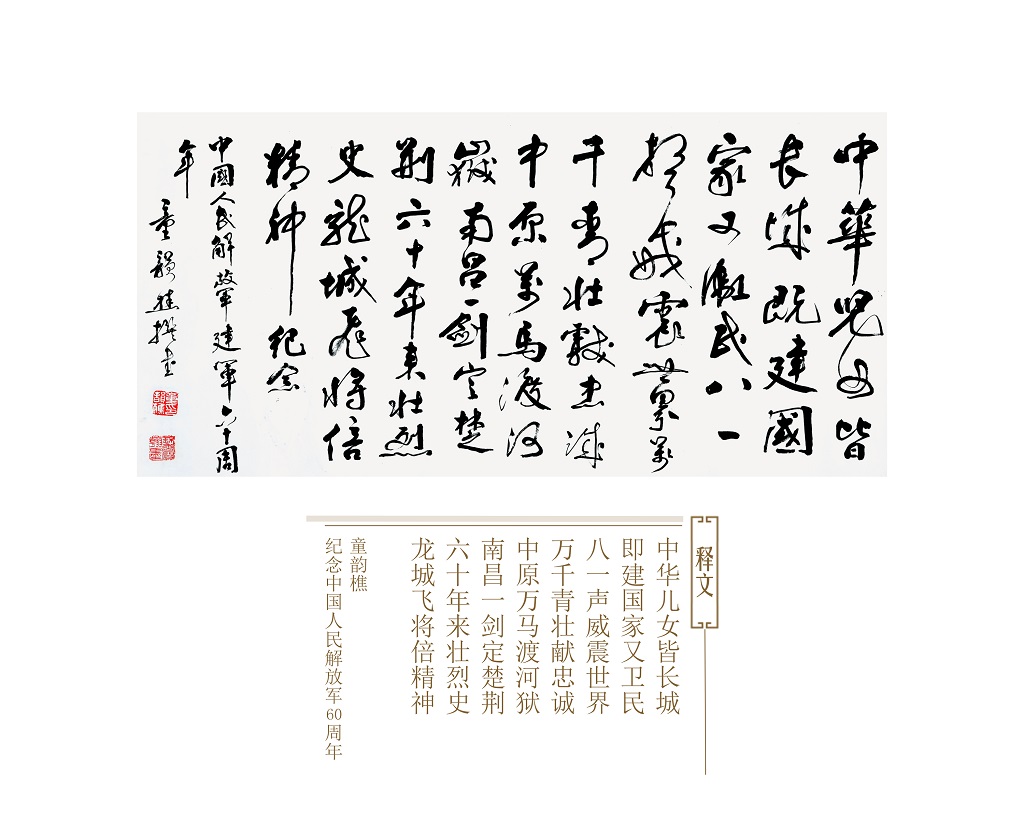 中華兒女皆
長城既建國
家又衛民八一
聲威震世界萬
千青壯獻忠誠
中原萬馬渡河
嶽南昌一劍定楚
荆六十年来壯烈
史龍城飛將倍
精神 紀念
中國人民解放軍建軍六十周
年
童韻樵撰書
释文
中华儿女皆长城
即建国家又卫民
八一声威震世界
万千青壮献忠诚
中原万马渡河狱
南昌一剑定楚荆
六十年来壮烈史
龙城飞将倍精神
童韵樵
纪念中国人民解放军60周年